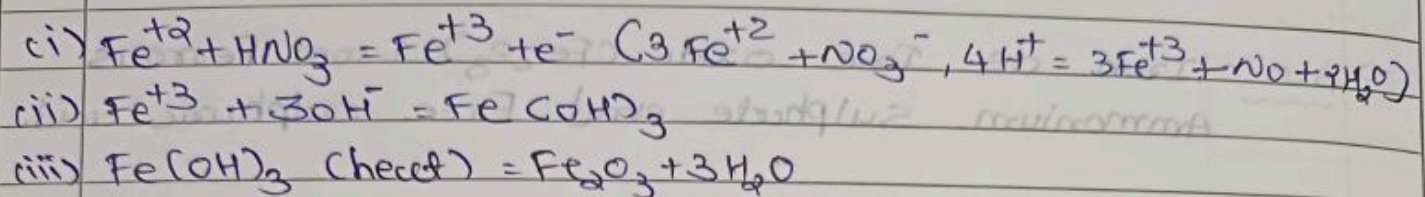 (i) Fe⁺² + HNO₃ = Fe⁺³ + e⁻ (3 Fe⁺² + NO₃⁻, 4H⁺ = 3Fe⁺³ + NO + 2H₂O)
(ii) Fe⁺³ + 3OH⁻ = Fe(OH)₃
(iii) Fe(OH)₃ (heat) = Fe₂O₃ + 3H₂O